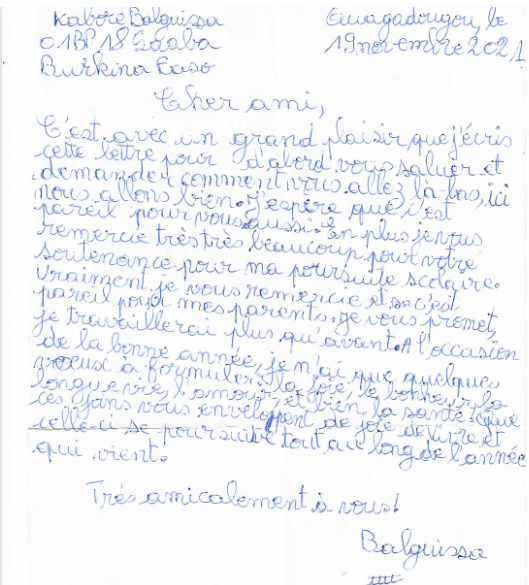 Kaboré Balguissa
01 BP 18 Saaba
Burkina Faso
Ouagadougou, le
19 novembre 2021
Cher ami,
C'est avec un grand plaisir que j'écris
cette lettre pour d'abord vous saluer et
demander comment vous allez là-bas, ici
nous allons bien. J'espère que c'est
pareil pour vous aussi. En plus je vous
remercie très très beaucoup pour votre
soutenance pour ma poursuite scolaire.
Vraiment je vous remercie et c'est
pareil pour mes parents. Je vous promet,
je travaillerai plus qu'avant. A l'occasion
de la bonne année, je n'ai que quelques
voeux à formuler: la joie, le bonheur, la
longue vie, l'amour, et bien la santé. Que
ces gans vous enveloppent de joie de vivre et
celle-ci se poursuive tout au long de l'année
qui vient.
Très amicalement à vous!
Balguissa